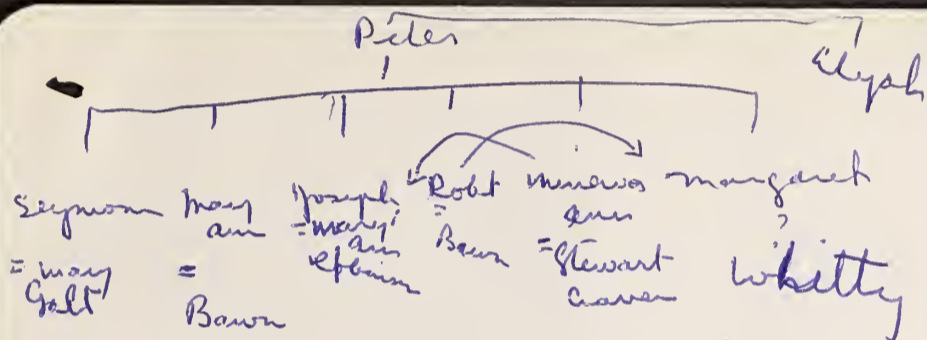 Peter
Elijah
Seymour
= Mary
Galt
Mary
ann
=
Bown
Joseph
= Mary
ann
Robt
=
Bown
Minerva
ann
= Stewart
Craven
Margaret
?
Whitty